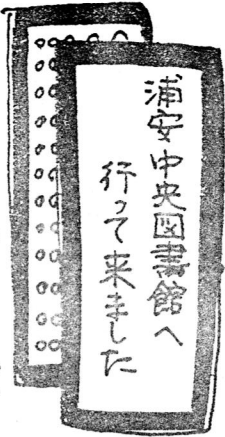 浦安中央図書館へ
行って来ました